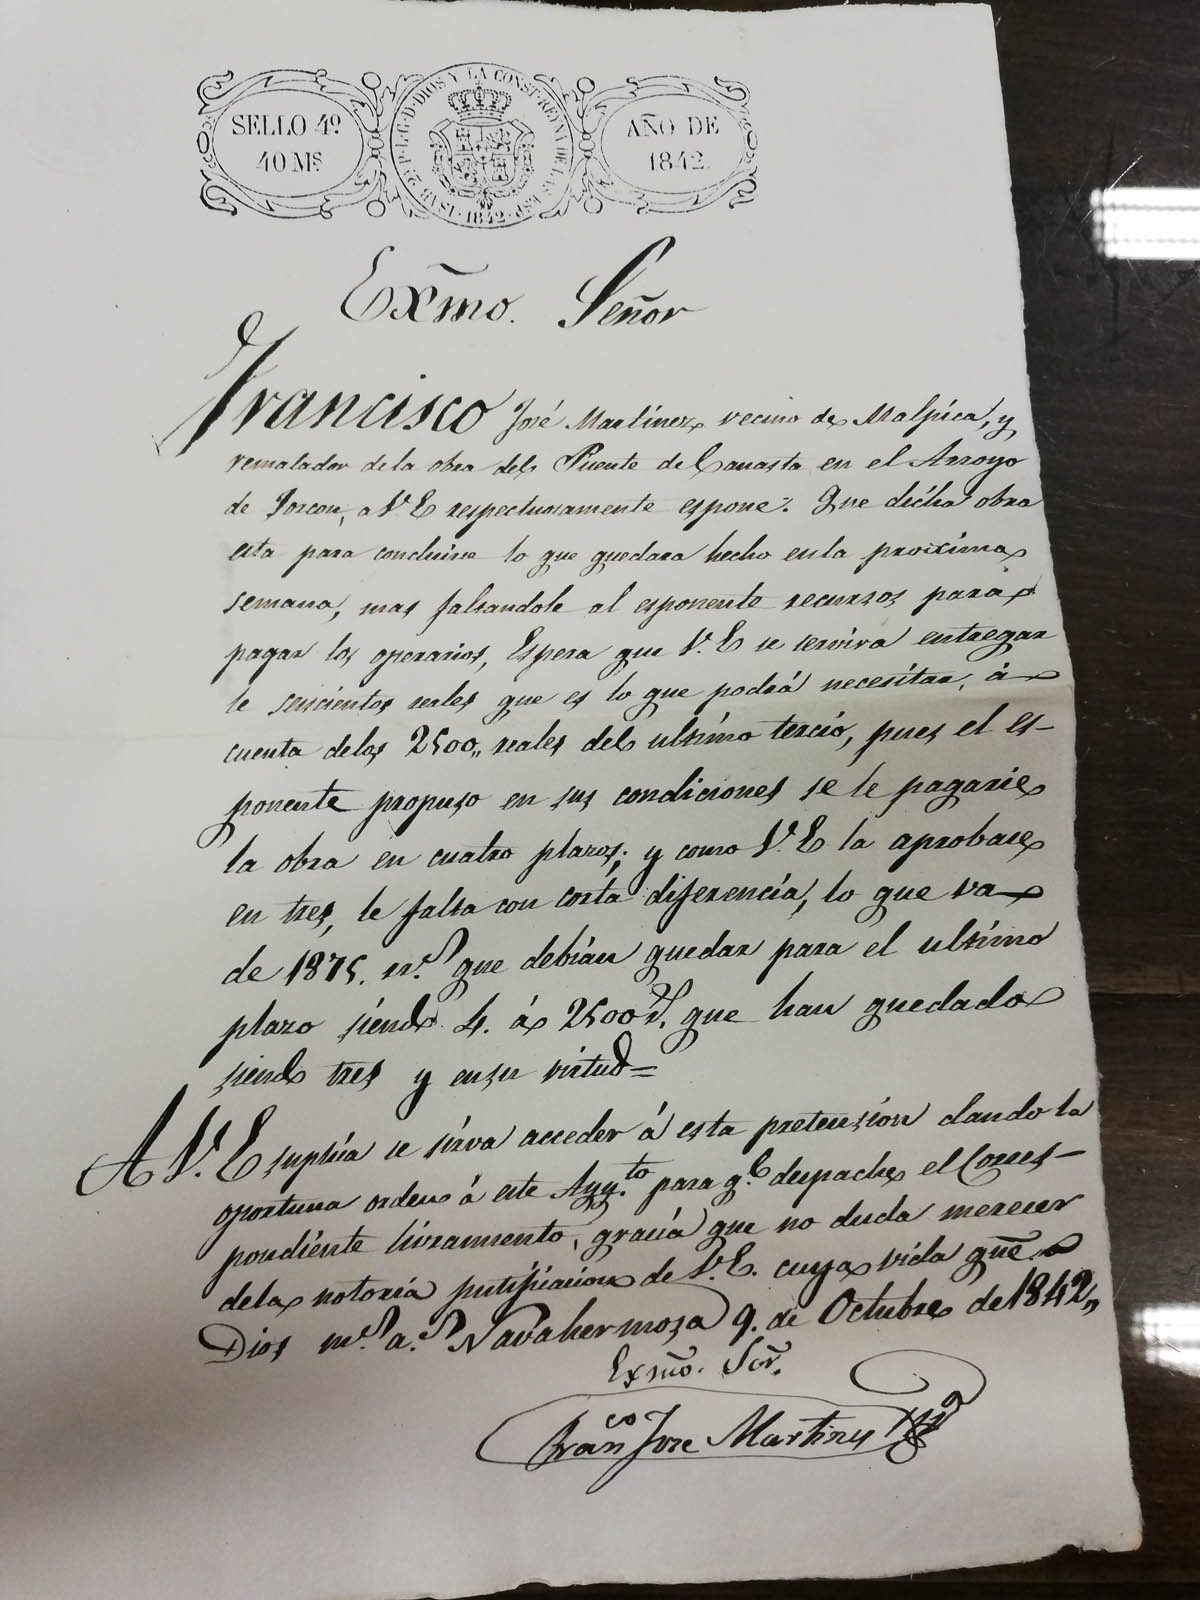 SELLO 4º
40 Ms.
ISAB. 2ª P. L. G. D. DIOS Y LA CONST. REYNA DE LAS ESP. 1842
AÑO DE
1842.
Exm̃o. Señor
Francisco José Martinez, vecino de Malpica, y
rematador de la obra del Puente de Canasta en el Arroyo
de Torcon, a V. E respectuosamente espone: Que dicha obra
esta para concluirse lo que quedara hecho en la proxima
semana, mas faltandole al esponente recursos para
pagar los operarios, Espera que V. E se servira entregar
le seiscientos reales que es lo que podrá necesitar, á
cuenta de los 2500,, reales del ultimo tercio, pues el es-
ponente propuso en sus condiciones se le pagarie
la obra en cuatro plazos; y como V. E la aprobase
en tres, le falta con corta diferencia, lo que va
de 1875. rr.s que debian quedar para el ultimo
plazo siendo 4. á 2500 r.s que han quedado
siendo tres y en su virtud=
A V. E suplica se sirva acceder á esta pretension dando la
oportuna orden á este Ayy.to para q.e despache el Corres-
pondiente libramiento, gracia que no duda merecer
de la notoria justificacion de V. E. cuya vida gũe
Dios m.s a.s Navahermosa 9. de Octubre de 1842,,
Exm̃o. Sor̃.
Fran.co Jose Martinez